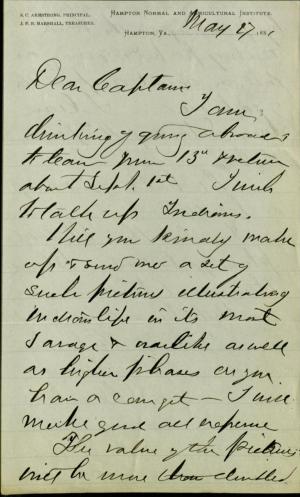 S. C. ARMSTRONG, PRINCIPAL.
J. F. B. MARSHALL, TREASURER.
HAMPTON NORMAL AND AGRICULTURAL INSTITUTE.
HAMPTON, VA., May 27, 188
Dear Captain
I am
thinking of going abroad
to leave June 13th & return
about Sept. 1st I wish
to talk up Indians.
Will you kindly make
up & send me a set of
such pictures illustrating
Indian life in its most
savage & warlike as well
as higher phases as you
have or can get - I will
make good all expense
The value of the pictures
will be more than doubled